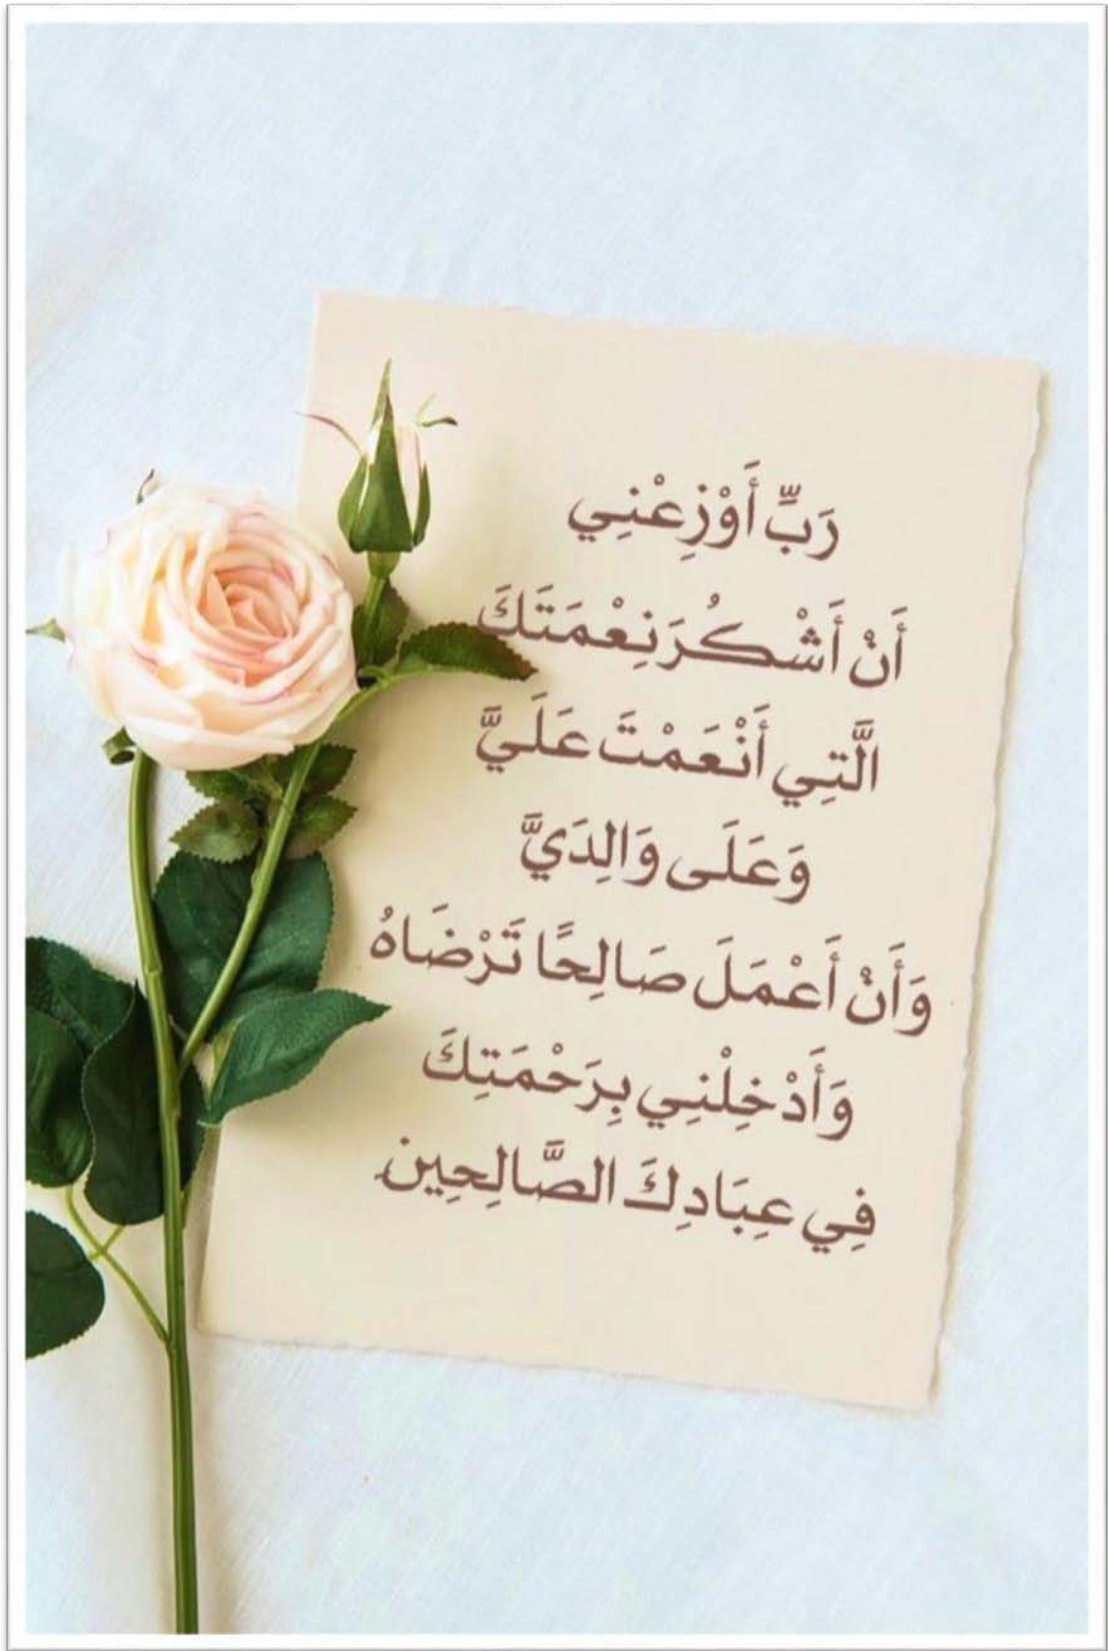 رَبِّ أَوْزِعْنِي
أَنْ أَشْكُرَ نِعْمَتَكَ
الَّتِي أَنْعَمْتَ عَلَيَّ
وَعَلَى وَالِدَيَّ
وَأَنْ أَعْمَلَ صَالِحًا تَرْضَاهُ
وَأَدْخِلْنِي بِرَحْمَتِكَ
فِي عِبَادِكَ الصَّالِحِين